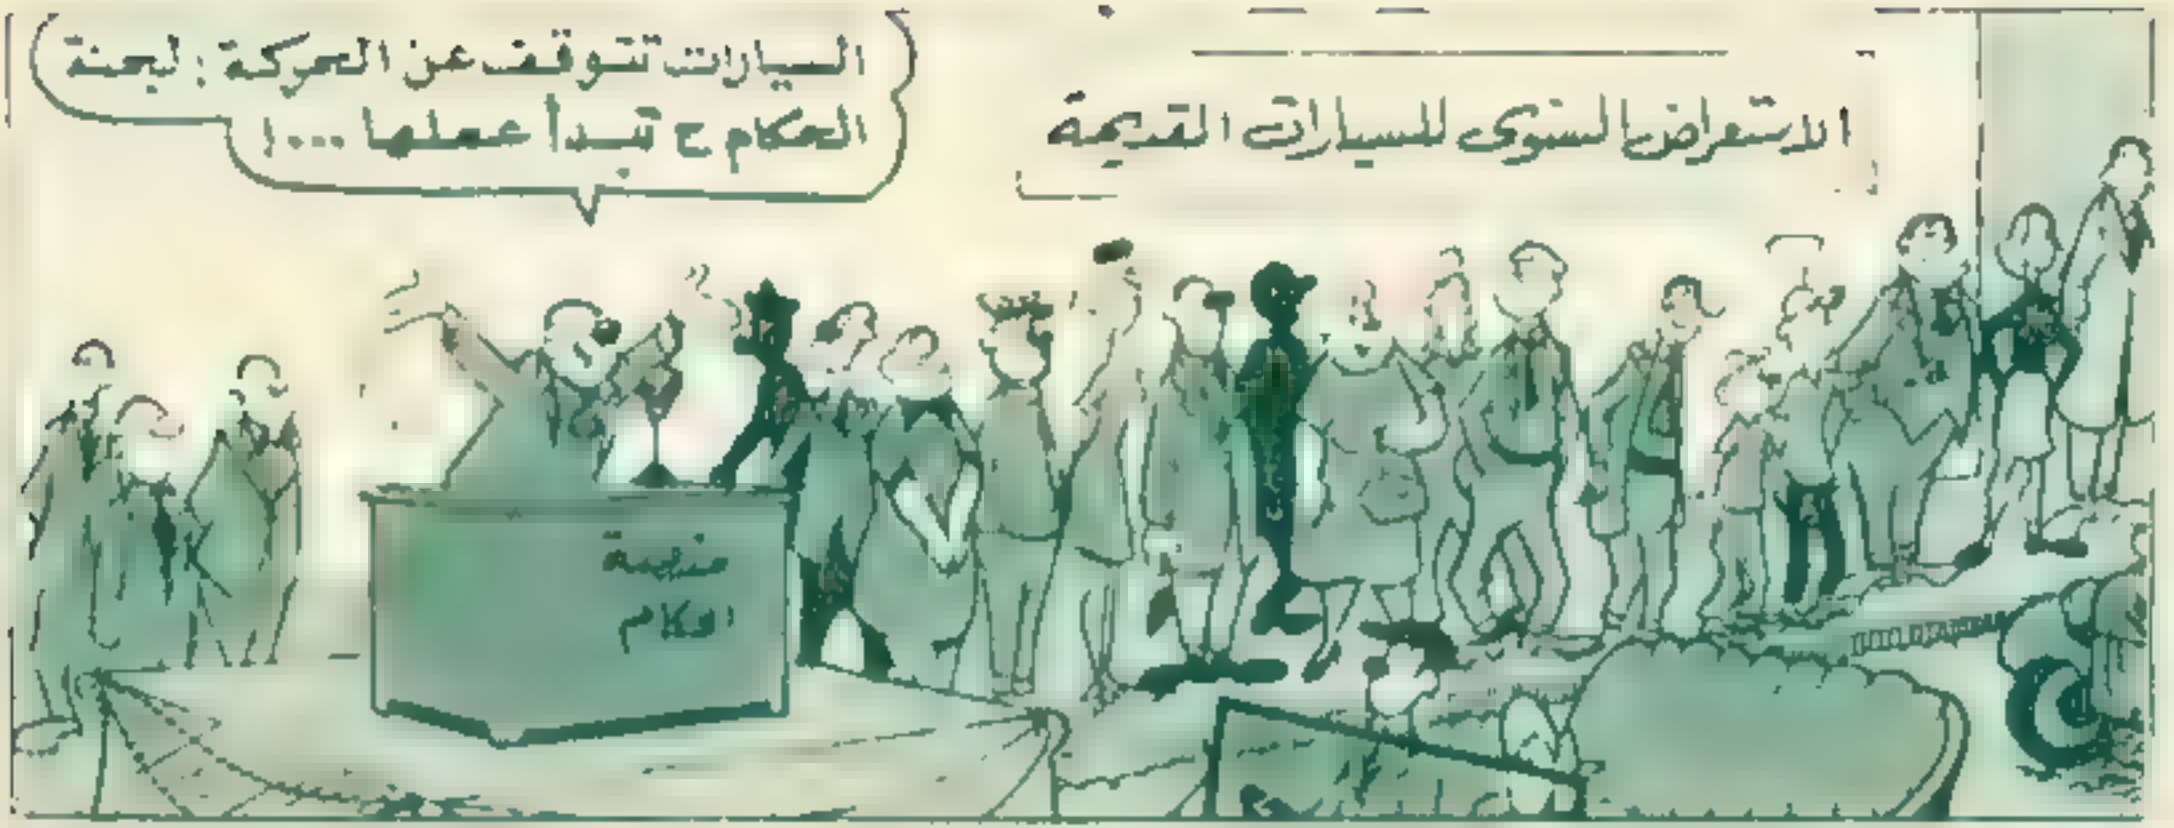 الاستعراض السنوى للسيارات القديمة
السيارات تتوقف عن الحركة : لجنة
الحكام ح تبدأ عملها ...!
منصة
الحكام